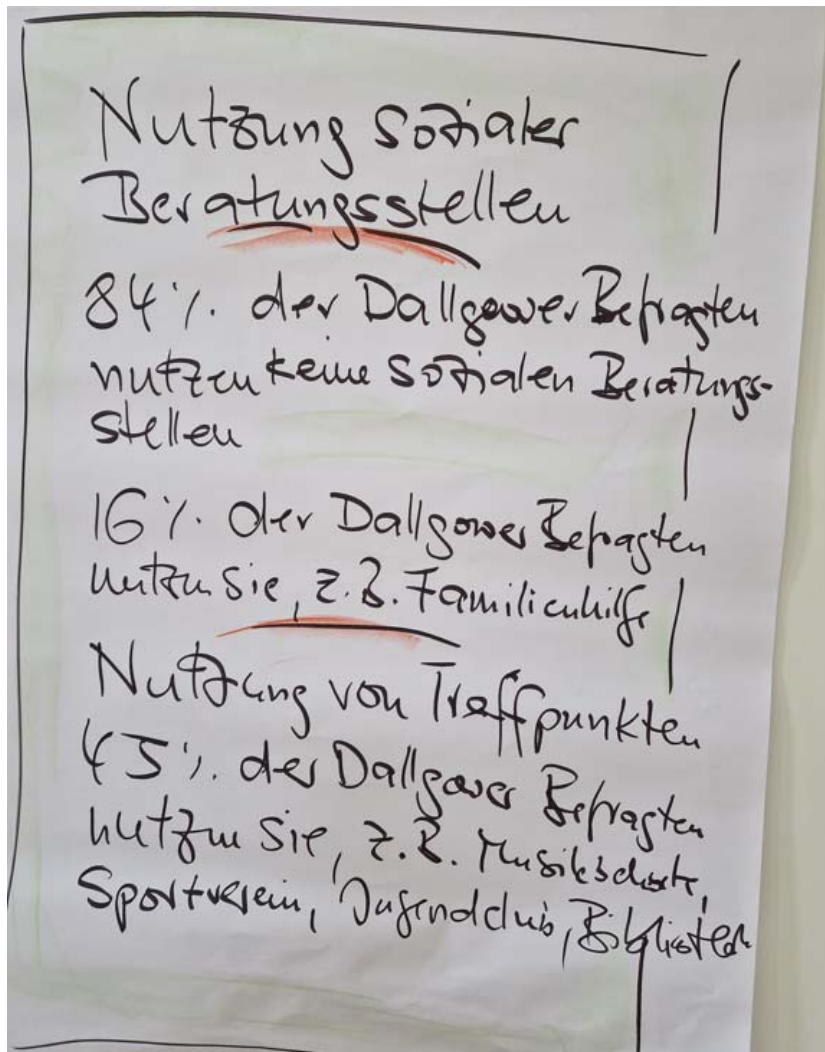 Nutzung sozialer
Beratungsstellen
84 % der Dallgower Befragten
nutzen keine sozialen Beratungs-
stellen
16 % der Dallgower Befragten
nutzen sie, z.B. Familienhilfe
Nutzung von Treffpunkten
45 % der Dallgower Befragten
nutzen sie, z.B. Musikschule,
Sportverein, Jugendclub, Bibliothek